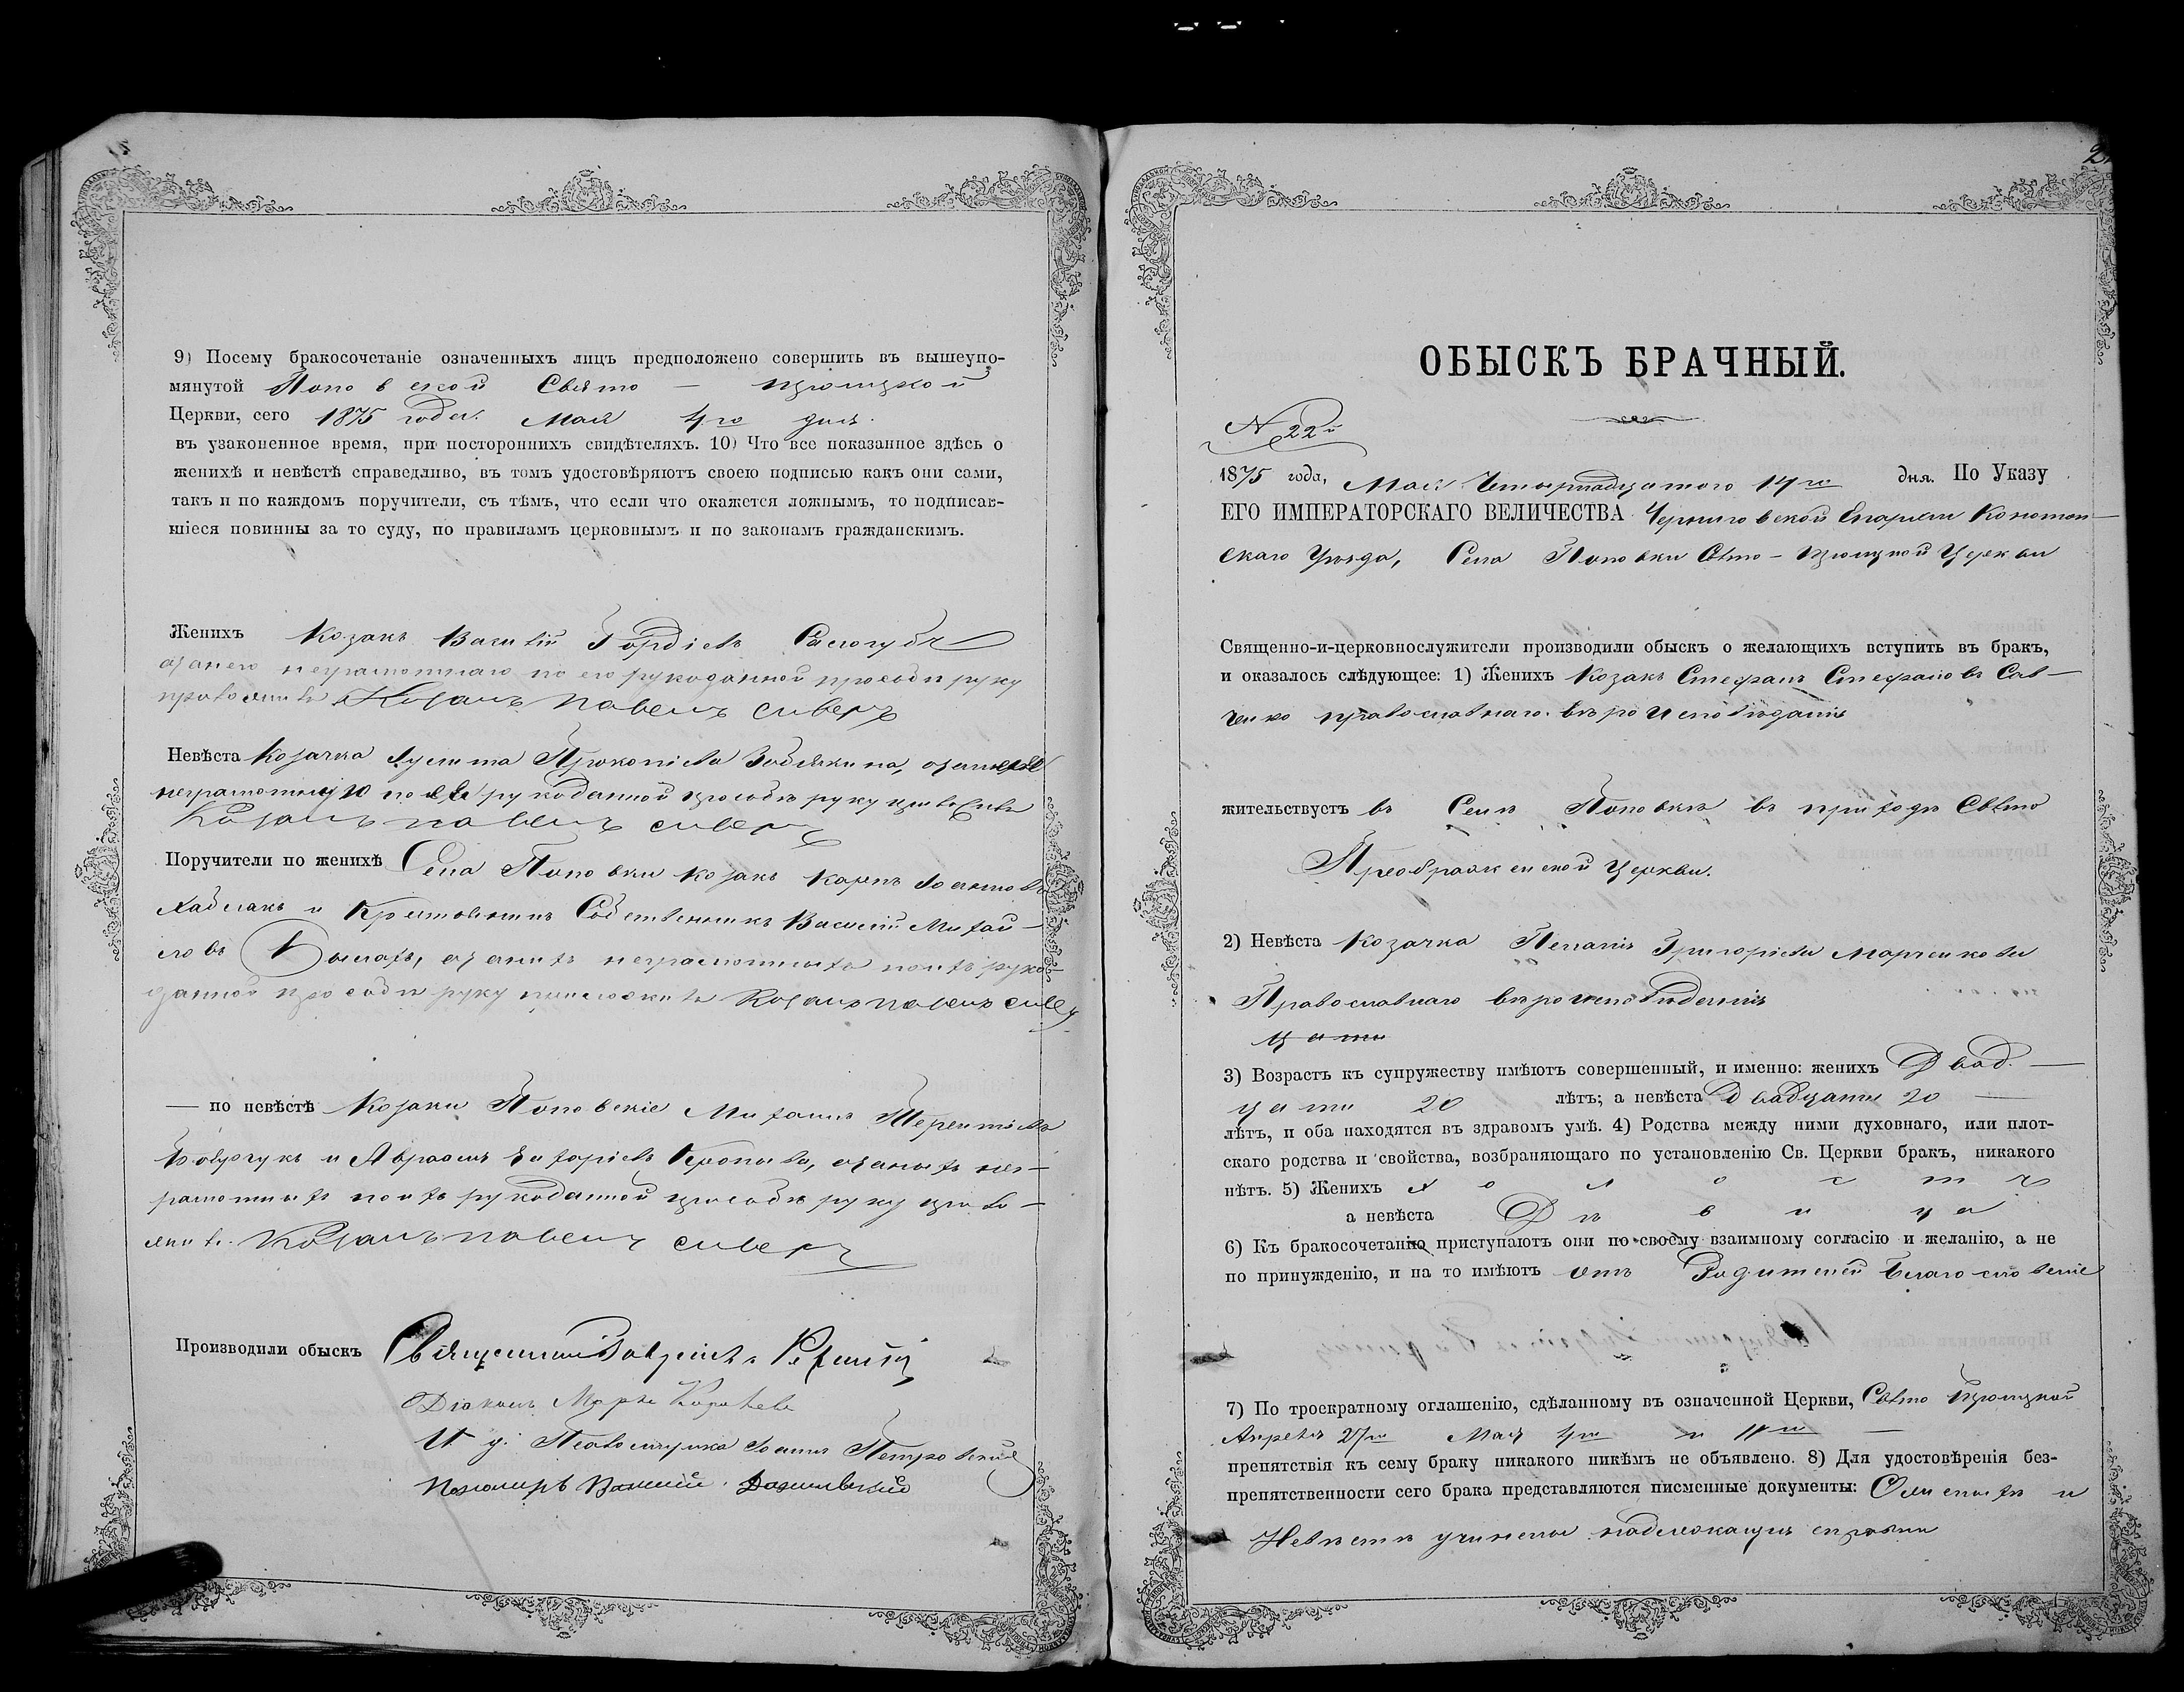 9) Посему бракосочетаніе означенныхъ лицъ предположено совершить въ вышеупо-
мянутой Поповской Свято — Троицкой
Церкви, сего 1875 года. Мая 4го дня.
въ узаконенное время, при постороннихъ свидѣтеляхъ. 10) Что все показанное здѣсь о
женихѣ и невѣстѣ справедливо, въ томъ удостовѣряютъ своею подписью какъ они сами,
такъ и по каждомъ поручители, съ тѣмъ, что если что окажется ложнымъ, то подписав-
шіеся повинны за то суду, по правиламъ церковнымъ и по законамъ гражданскимъ.
Женихъ Козакъ Василій Гордіевъ
неграмотнаго по его рукоданной прозьбѣ руку
Козакъ Павелъ Сиверъ
Невѣста Козачка Прокопіева
рукоданной прозьбѣ руку
Козакъ Павелъ Сиверъ
Поручители по женихѣ Села Поповки Козакъ Карпъ
и Собственникъ Василій Михай-
ловъ неграмотныхъ по ихъ руко-
данной прозьбѣ руку приложилъ Козакъ Павелъ Сивер
— по невѣстѣ Козаки Поповскіе Михаилъ Терентіевъ
и Авраамъ Захаріевъ нег-
рамотныхъ по ихъ рукоданной прозьбѣ руку прило-
жилъ. Козакъ Павелъ Сиверъ
Производили обыскъ Священникъ
Діаконъ Маркъ
И. д. Псаломщика Іоаннъ Петровскій
Пономарь Василій
ОБЫСКЪ БРАЧНЫЙ.
N 22й
1875 года, Мая Четырнадцатого 14го дня. По Указу
ЕГО ИМПЕРАТОРСКАГО ВЕЛИЧЕСТВА Черниговской Епархіи Конотоп-
скаго Уѣзда, Села Поповки Свто-Троицкой Церкви
Священно-и-церковнослужители производили обыскъ о желающихъ вступить въ бракъ,
и оказалось слѣдующее: 1) Женихъ Козакъ Стефанъ Стефановъ Сав-
ченко православнаго вѣроисповѣданія
жительствуетъ въ Селѣ Поповкѣ въ приходѣ Свто
Преображенской Церкви.
2) Невѣста Козачка Пелагія Григоріева Марченкова
Православнаго вѣроисповѣданія
цати
3) Возрастъ къ супружеству имѣютъ совершенный, и именно: женихъ Двад. —
цати 20 лѣтъ; а невѣста Двадцати 20 —
лѣтъ, и оба находятся въ здравомъ умѣ. 4) Родства между ними духовнаго, или плот-
скаго родства и свойства, возбраняющаго по установленію Св. Церкви бракъ, никакого
нѣтъ. 5) Женихъ Холостъ
а невѣста Дѣвица
6) Къ бракосочетанію приступаютъ они по своему взаимному согласію и желанію, а не
по принужденію, и на то имѣютъ отъ Родителей благословеніе
7) По троекратному оглашенію, сдѣланному въ означенной Церкви, Свто Троицкой
Апреля 27го Мая 4го и 11го —
препятствія къ сему браку никакого никѣмъ не объявлено. 8) Для удостовѣренія без-
препятственности сего брака представляются писменные документы: О женихѣ и
Невѣстѣ учинены надлежащія справки